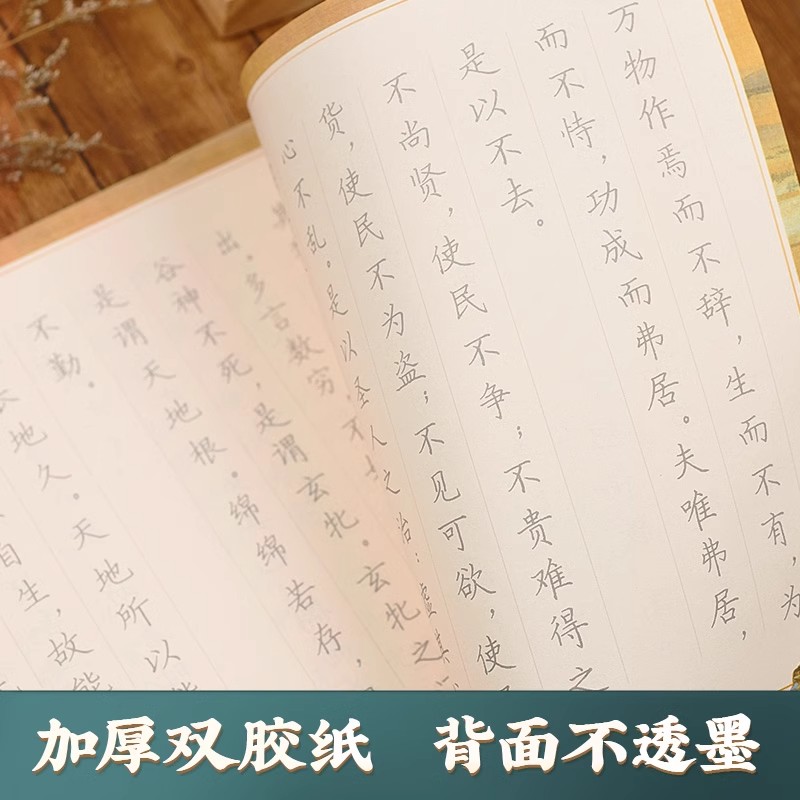 万物作焉而不辞，生而不有，为
而不恃，功成而弗居。夫唯弗居，
是以不去。
不尚贤，使民不争；不贵难得之
货，使民不为盗；不见可欲，使
心不乱。是以圣人之治：虚其
出。多言数穷，不
谷神不死，是谓玄牝。玄牝之
是谓天地根。绵绵若存，
不勤。
地久。天地所以能
自生，故能
加厚双胶纸 背面不透墨